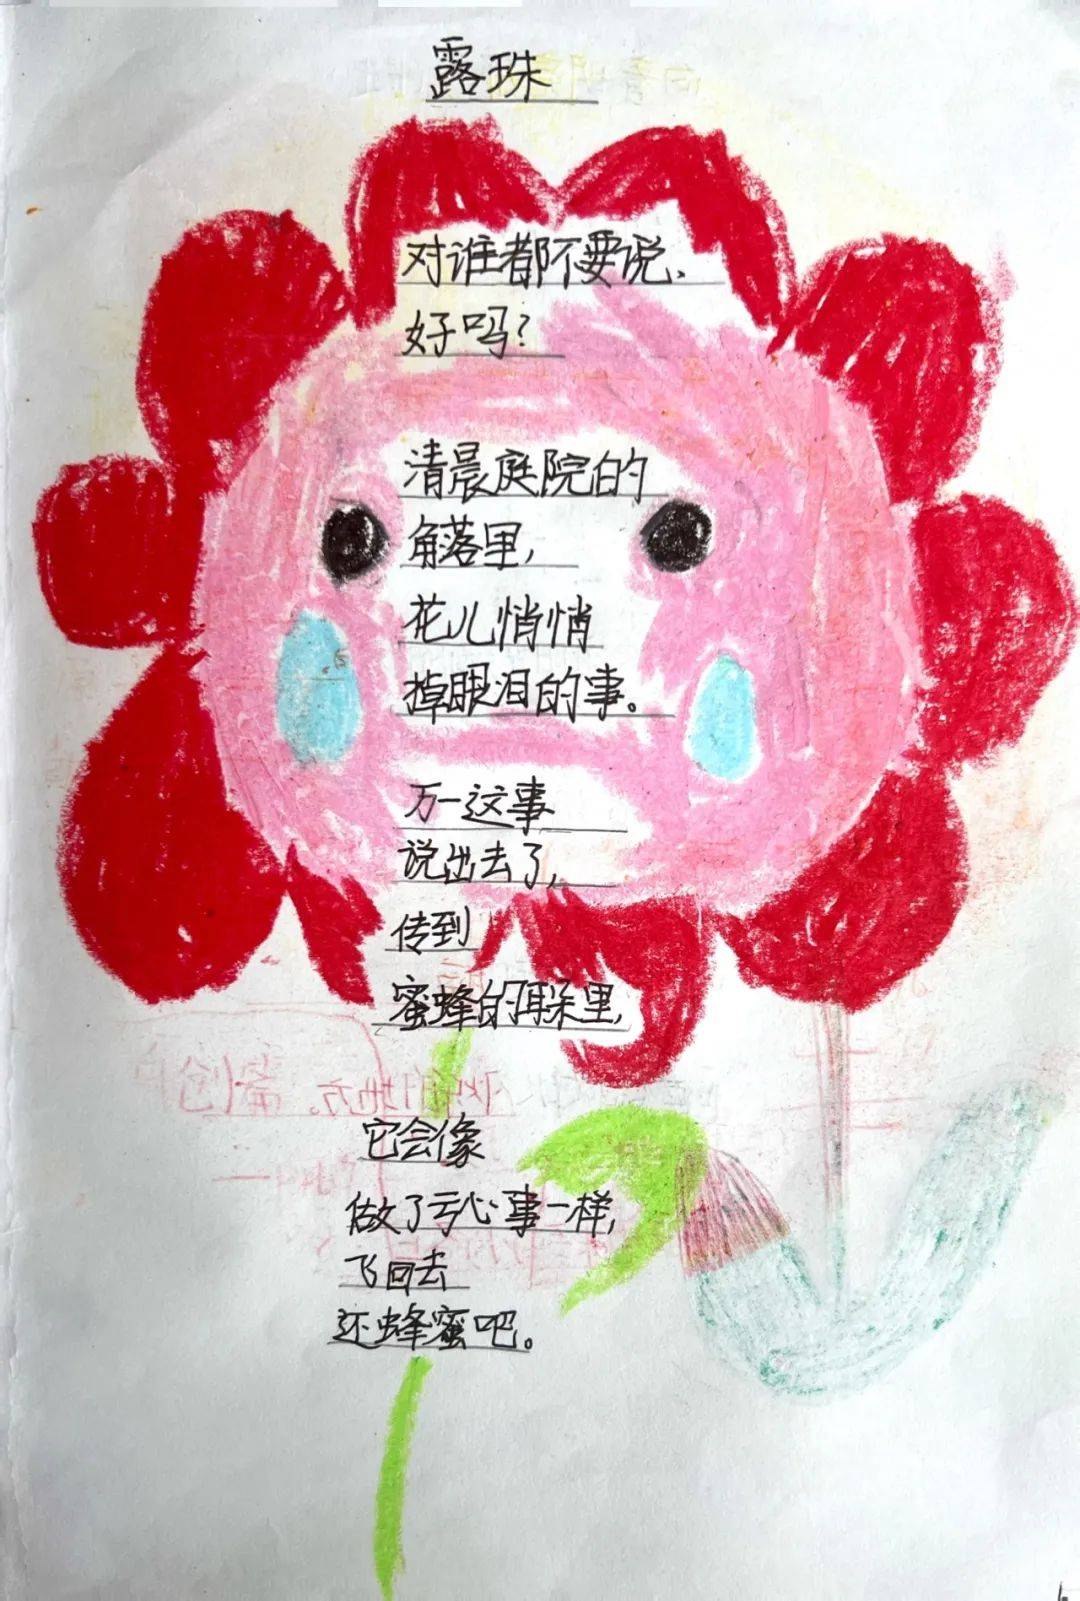 露珠
对谁都不要说、
好吗？
清晨庭院的
角落里，
花儿悄悄
掉眼泪的事。
万一这事
说出去了，
传到
蜜蜂的耳朵里，
它会像
做了亏心事一样，
飞回去
还蜂蜜吧。